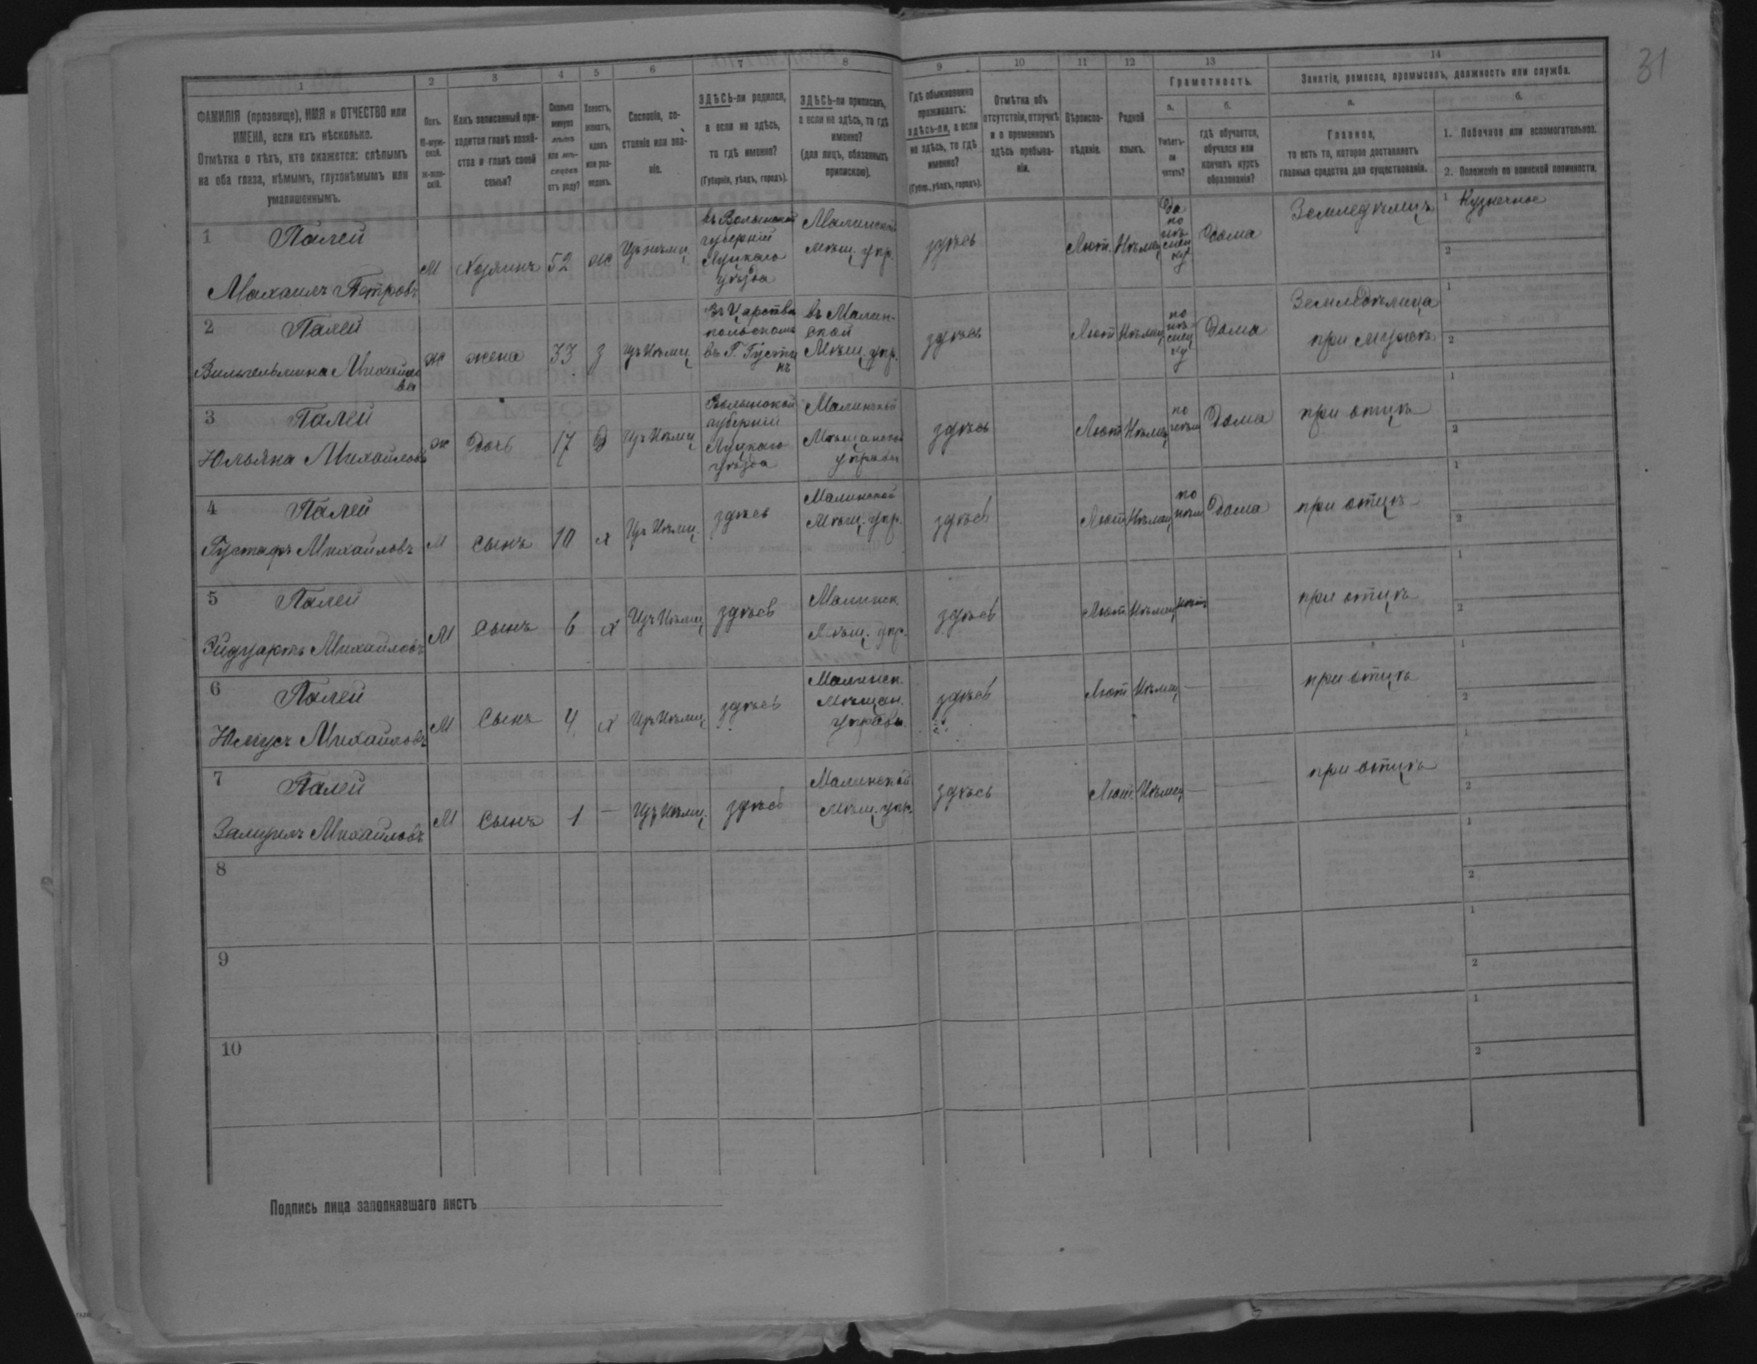 31
1 2 3 4 5 6 7 8 9 10 11 12 13 14
ФАМИЛІЯ (прозвище), ИМЯ и ОТЧЕСТВО или ИМЕНА, если ихъ нѣсколько.
Отмѣтка о тѣхъ, кто окажется: слѣпымъ на оба глаза, нѣмымъ, глухонѣмымъ или умалишеннымъ.
Полъ. М-мужской. Ж-женскій.
Какъ записанный приходится главѣ хозяйства и главѣ своей семьи?
Сколько минуло лѣтъ или мѣсяцевъ отъ роду?
Холостъ, женатъ, вдовъ или разведенъ.
Сословіе, состояніе или званіе.
ЗДѢСЬ-ли родился, а если не здѣсь, то гдѣ именно?
(Губернія, уѣздъ, городъ).
ЗДѢСЬ-ли приписанъ, а если не здѣсь, то гдѣ именно?
(для лицъ, обязанныхъ припискою).
Гдѣ обыкновенно проживаетъ: здѣсь-ли, а если не здѣсь, то гдѣ именно?
(Губер., уѣздъ, городъ).
Отмѣтка объ отсутствіи, отлучкѣ и о временномъ здѣсь пребываніи.
Вѣроисповѣданіе.
Родной языкъ.
Грамотность.
а. Умѣетъ-ли читать?
б. гдѣ обучается, обучался или кончилъ курсъ образованія?
Занятіе, ремесло, промыселъ, должность или служба.
а. Главное, то есть то, которое доставляетъ главныя средства для существованія.
б.
1. Побочное или вспомогательное.
2. Положеніе по воинской повинности.
1 Палей Михаилъ Петровъ М Хозяинъ 52 ж Изъ нѣмц. въ Волынской губерніи Луцкаго уѣзда Малинской мѣщ. упр. здѣсь Лют. Нѣмец Да по нѣмецку Дома Земледѣлецъ 1 Кузнечное 2
2 Палей Вильгельмина Михайлова ж жена 33 з Изъ Нѣмц. въ Царствѣ польскомъ въ Г. въ Малинской Мѣщ. упр. здѣсь Лют Нѣмец по нѣмецку Дома Земледѣлица при мужѣ 1 2
3 Палей Юльяна Михайловъ ж Дочь 17 Д Изъ Нѣмц Волынской губерніи Луцкаго уѣзда Малинской Мѣщанской управы здѣсь Лют Нѣмец по нѣм Дома при отцѣ 1 2
4 Палей Густафъ Михайловъ М сынъ 10 х Изъ Нѣмц. здѣсь Малинской Мѣщ. упр. здѣсь Лют Нѣмец по нѣм Дома при отцѣ 1 2
5 Палей Эйдуартъ Михайловъ М сынъ 6 х Изъ Нѣмц. здѣсь Малинск. Мѣщ. упр. здѣсь Лют Нѣмец при отцѣ 1 2
6 Палей Юлиусъ Михайловъ М сынъ 4 х Изъ Нѣмц. здѣсь Малинск. Мѣщан. управы здѣсь Лют Нѣмец — при отцѣ 1 2
7 Палей Замуилъ Михайловъ М сынъ 1 — Изъ Нѣмц. здѣсь Малинской Мѣщ. упр. здѣсь Лют. Нѣмец — при отцѣ 1 2
8 1 2
9 1 2
10 1 2
Подпись лица заполнявшаго листъ